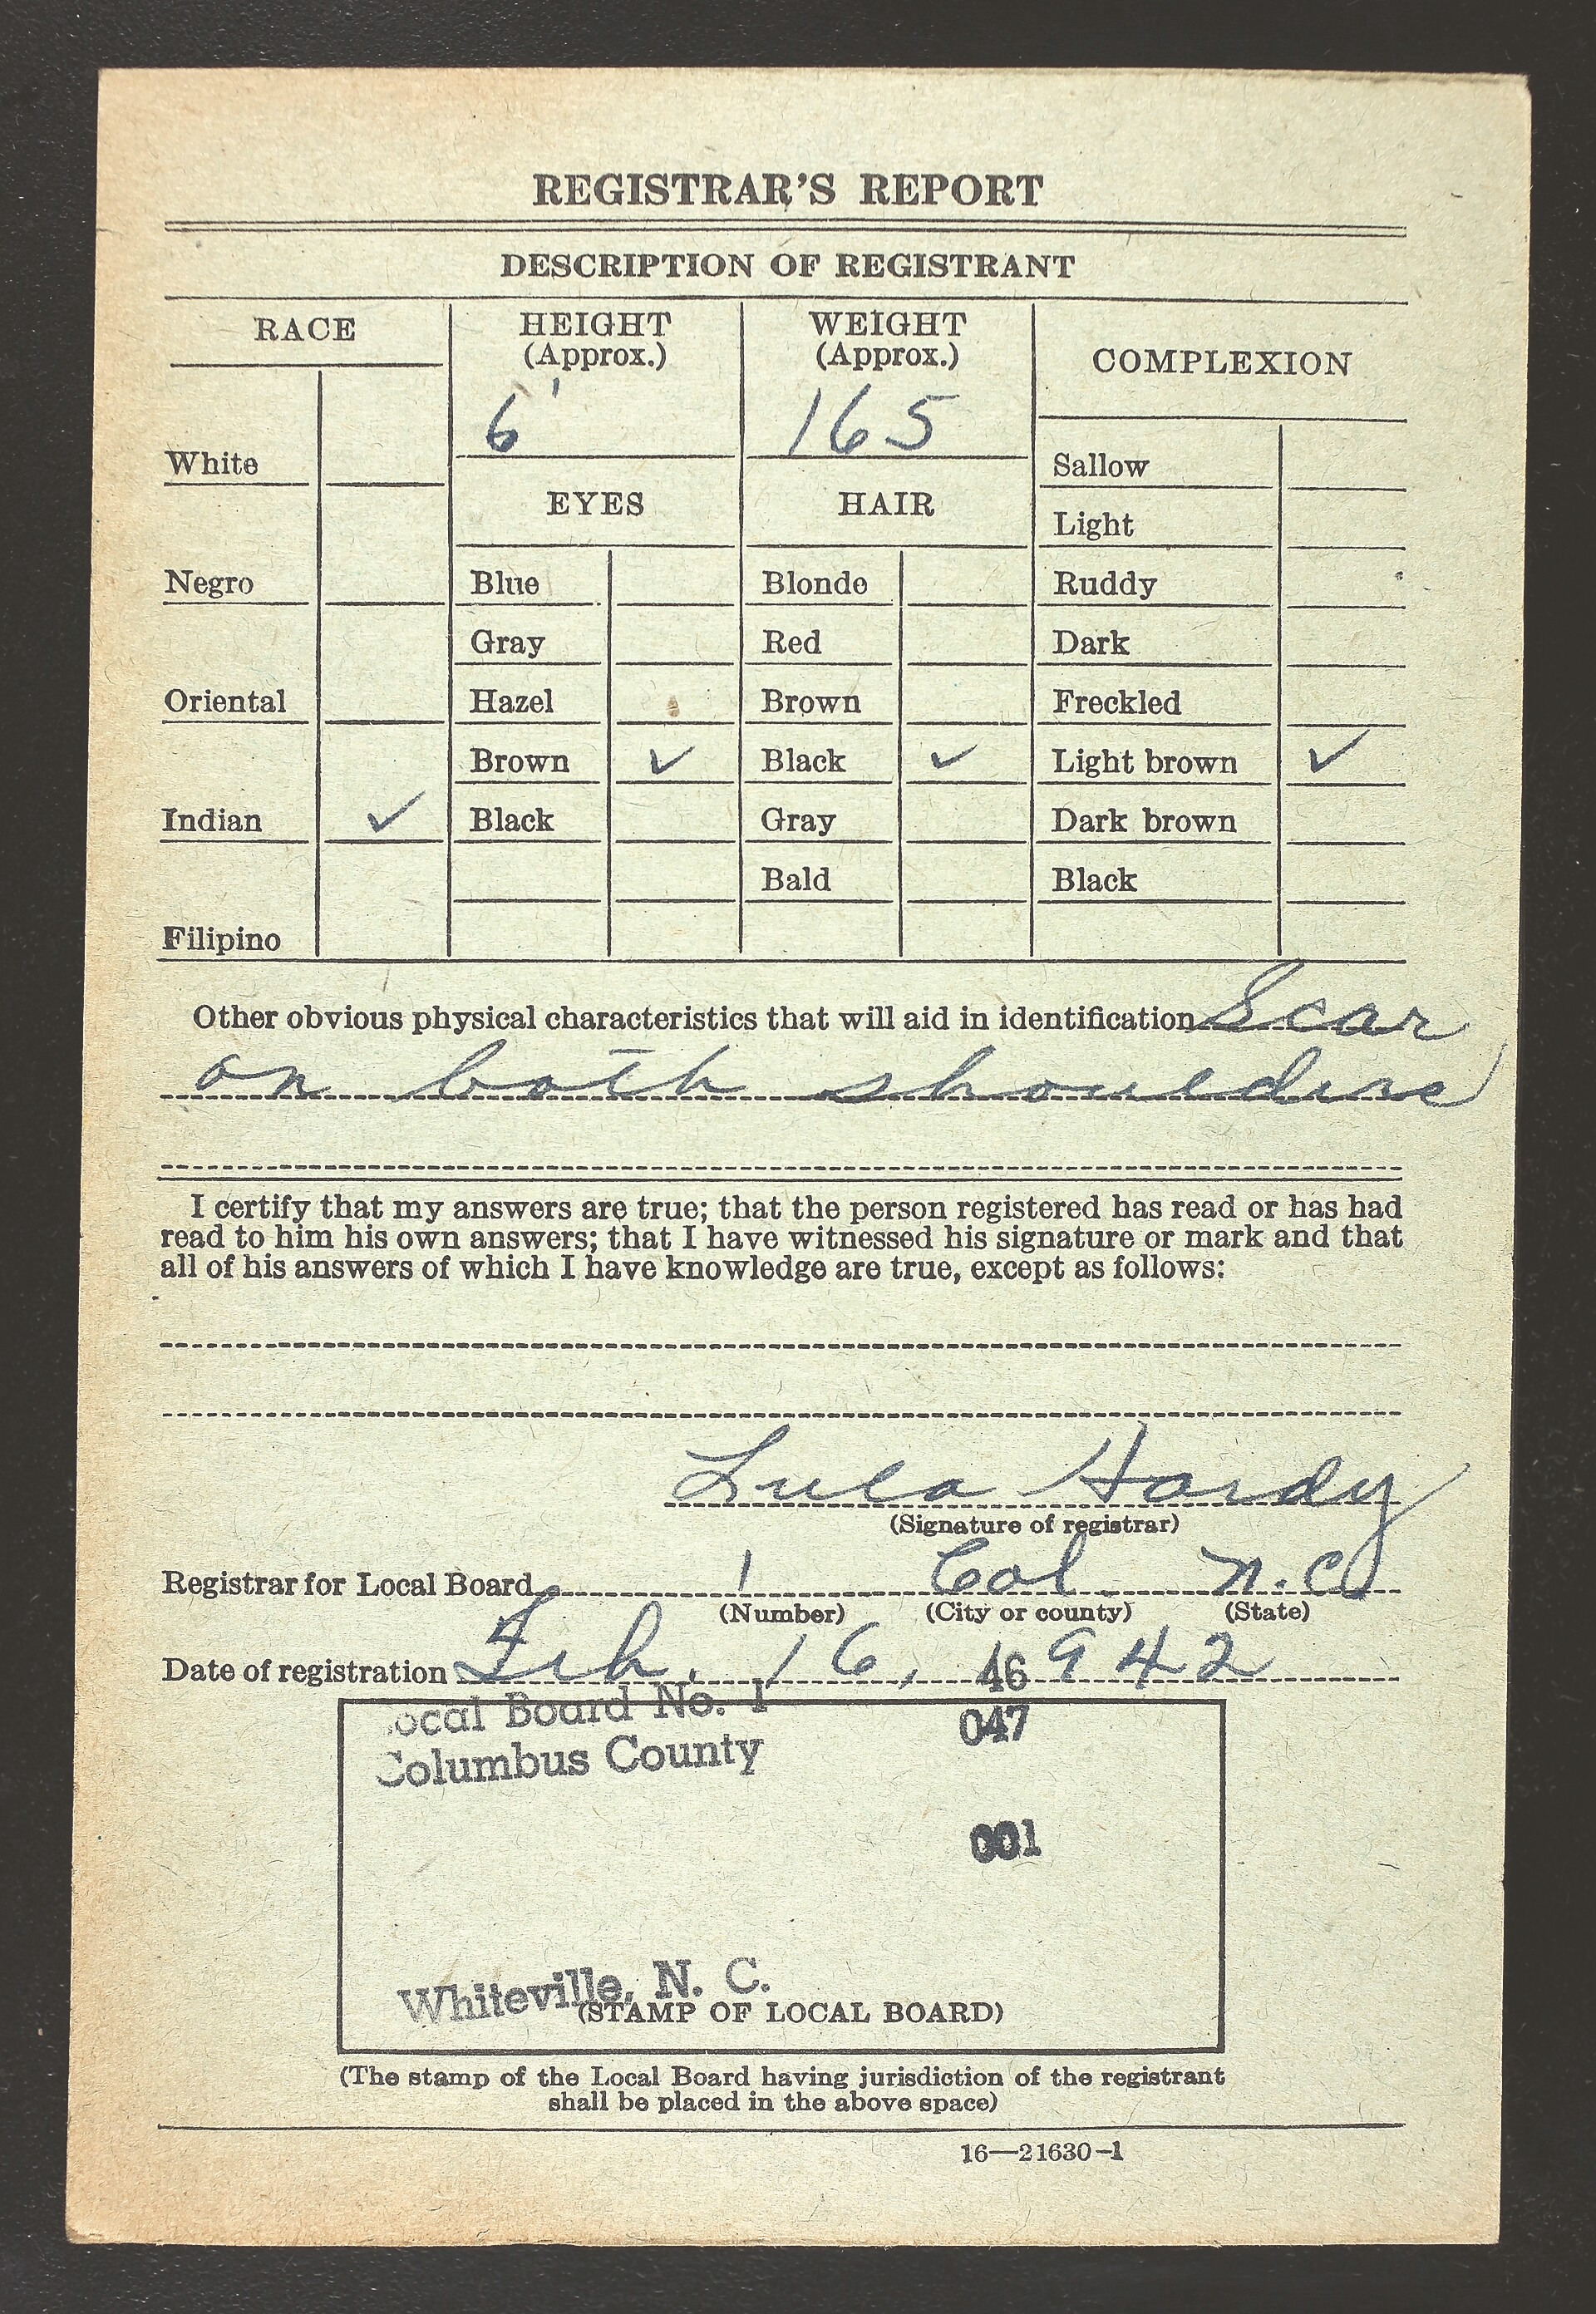 REGISTRAR'S REPORT
DESCRIPTION OF REGISTRANT
RACE
HEIGHT
(Approx.)
WEIGHT
(Approx.)
COMPLEXION
6'
165
White
Sallow
EYES
HAIR
Light
Negro
Blue
Blonde
Ruddy
Gray
Red
Dark
Oriental
Hazel
Brown
Freckled
Brown ✓
Black ✓
Light brown ✓
Indian ✓
Black
Gray
Dark brown
Bald
Black
Filipino
Other obvious physical characteristics that will aid in identification Scar
on both
I certify that my answers are true; that the person registered has read or has had
read to him his own answers; that I have witnessed his signature or mark and that
all of his answers of which I have knowledge are true, except as follows:
Lula Hardy
(Signature of registrar)
Registrar for Local Board 1 Col. N.C.
(Number) (City or county) (State)
Date of registration Feb. 16, 1942
46
ocal Board No. 1
047
Columbus County
001
Whiteville, N. C.
(STAMP OF LOCAL BOARD)
(The stamp of the Local Board having jurisdiction of the registrant
shall be placed in the above space)
16—21630-1